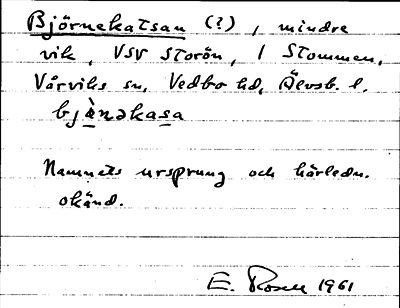 Björnekatsan (?), mindre
vik, VSV Storön, i Stommen,
Vårviks sn, Vedbo hd, Älvsb. l.
bjὰnəkasa
Namnets ursprung och härledn.
okänd.
E. Rosell 1961